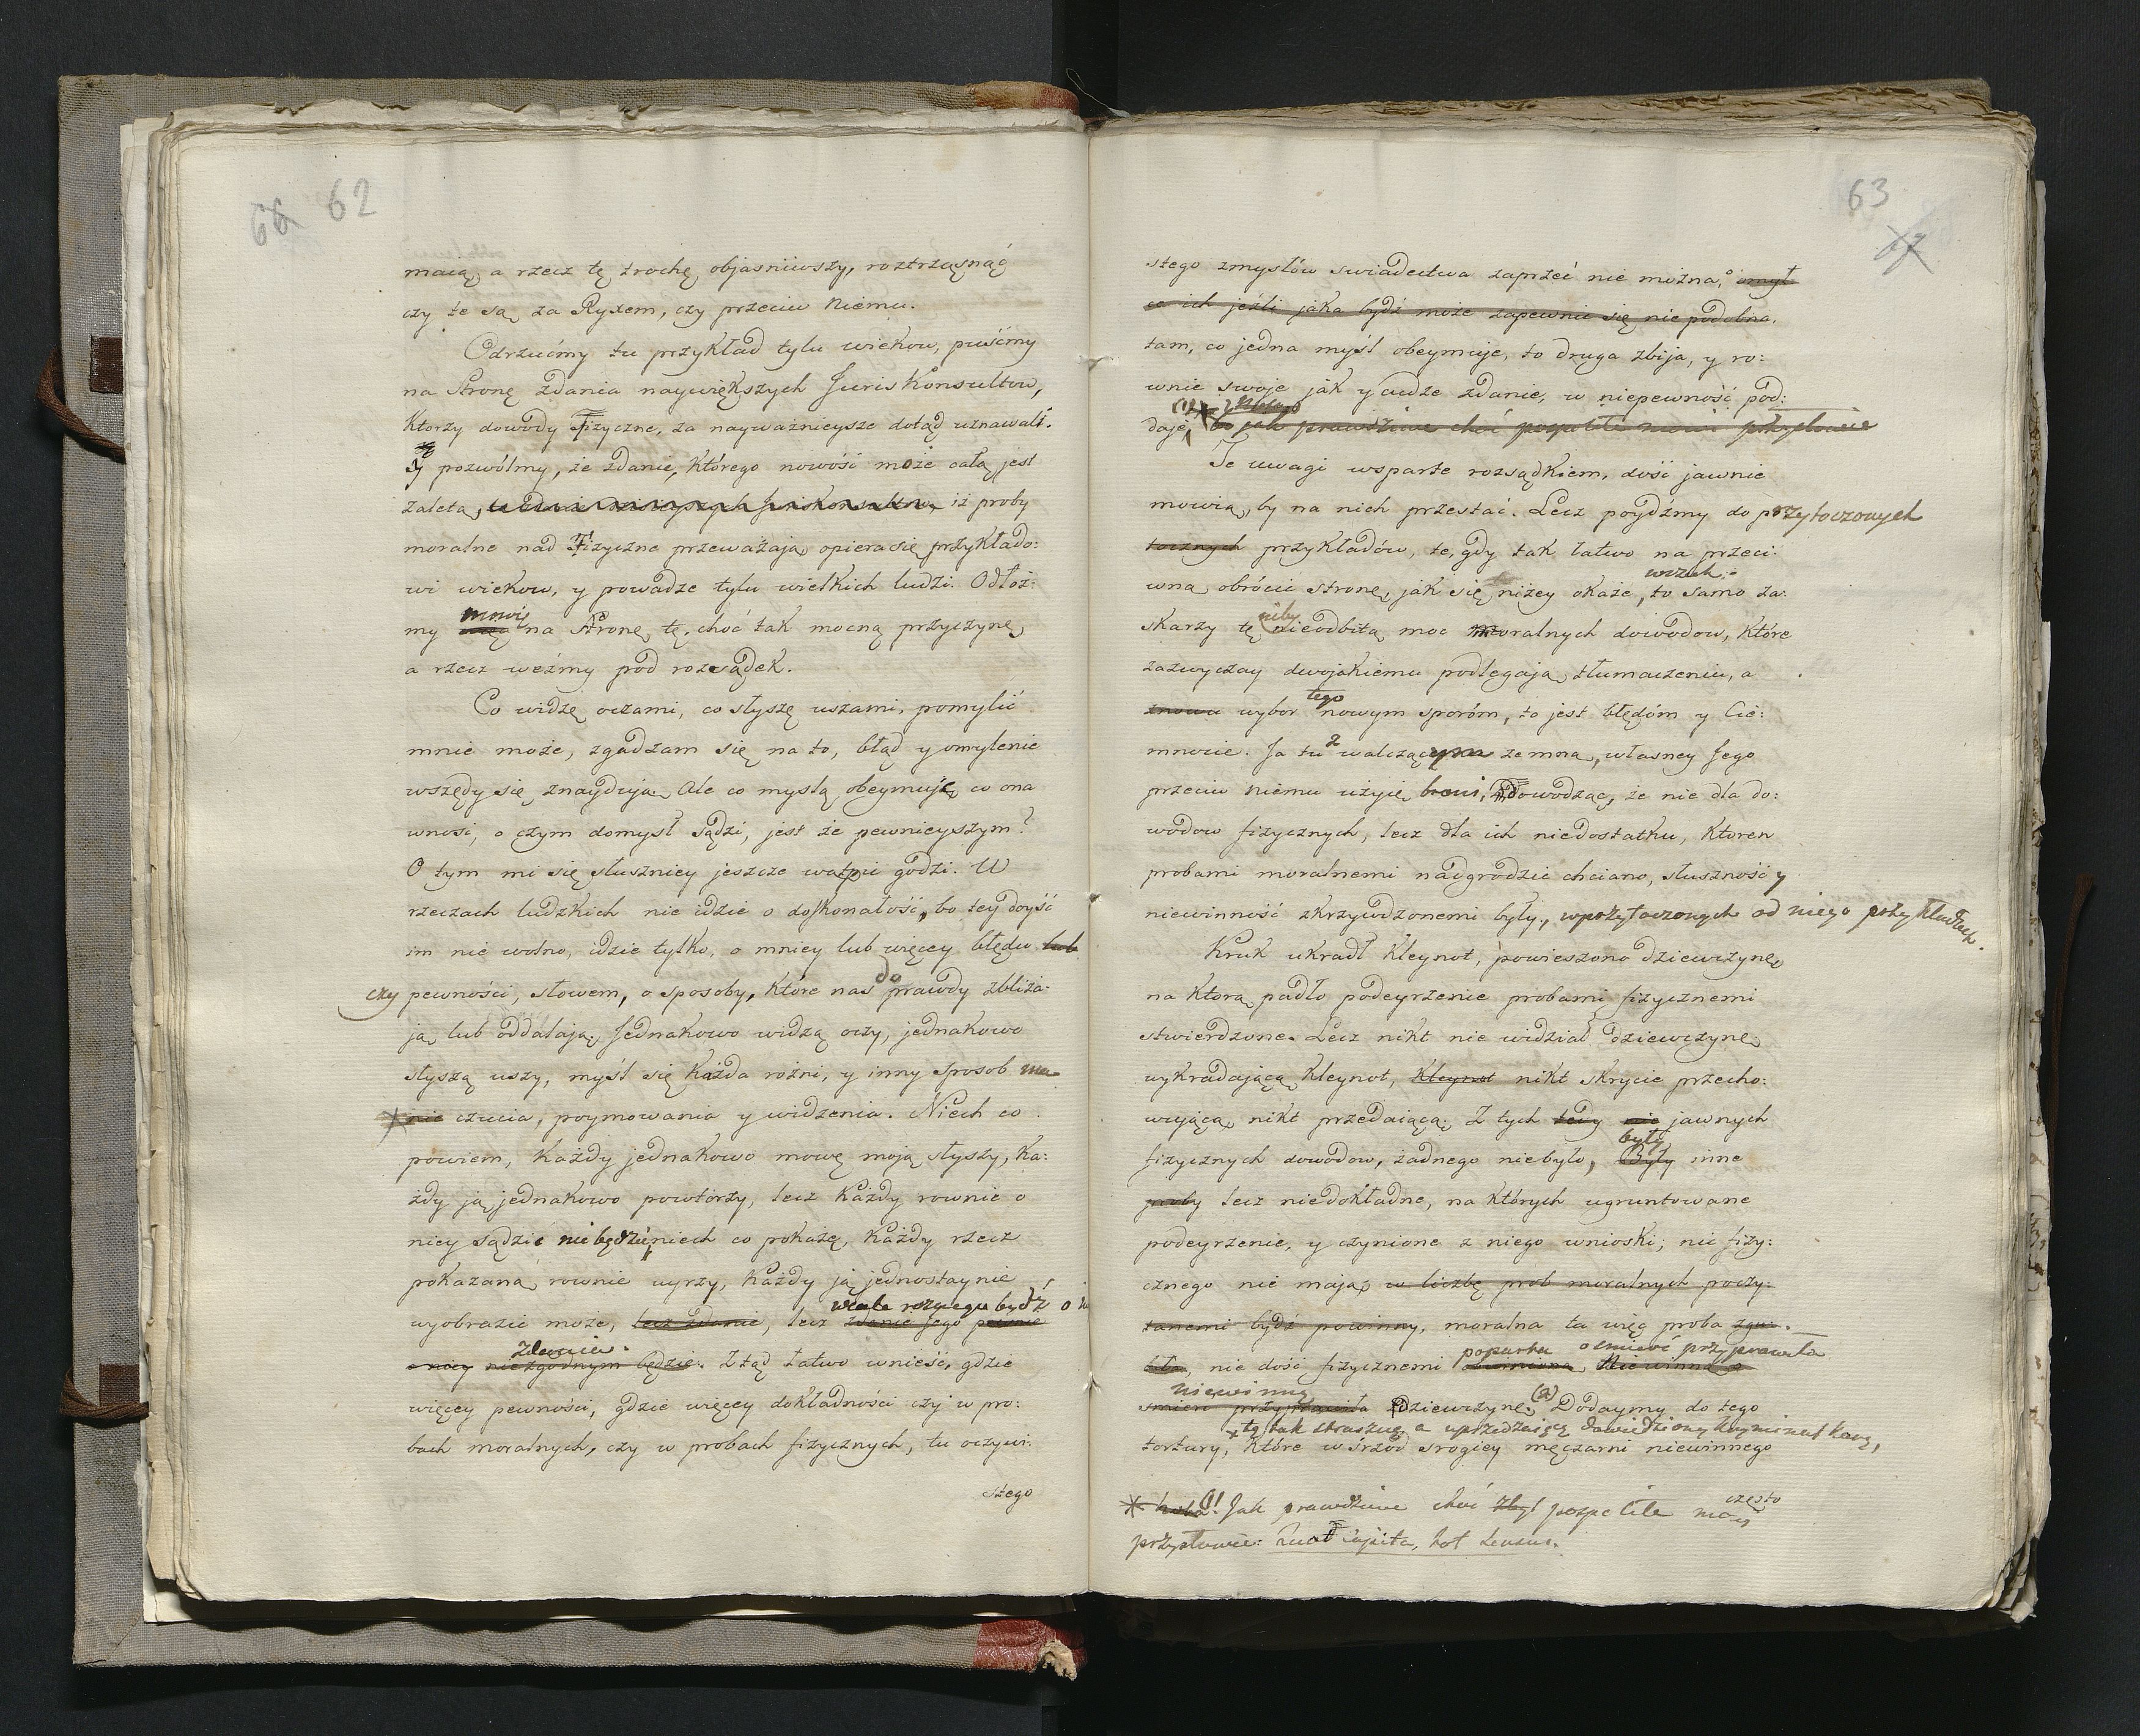 66 62
macą, a rzecz tę trochę objasniwszy, roztrząsnąć
czy te są za Ryxem, czy przeciw Niemu.
Odrzućmy tu przykład tylu wiekow, puśćmy
na Stronę zdania naywiększych Juris Konsultow,
Ktorzy dowody Fizyczne, za nayważnieysze dotąd uznawali.
y pozwólmy, że zdanie, którego nowość może całą jest
zaletą, iż proby
moralne nad Fizyczne przeważają, opiera się przykłado:
wi wiekow, y powadze tylu wielkich ludzi. Odłoż:
mowię
my na Stronę, tę, choć tak mocną przyczynę,
a rzecz weźmy pod rozsądek.
Co widzę oczami, co słyszę uszami, pomylić
mnie może, zgadzam się na to, błąd y omylenie
wszędy się znaydują. Ale co myslą obeymuję, co ona
wnosi, o czym domysł sądzi, jest że pewnieyszym?
O tym mi się słuszniey jeszcze wątpić godzi. W
rzeczach ludzkich nie idzie o doskonałość, bo tey doyść
im nie wolno, idzie tylko, o mniey lub więcey błędu lub
czy pewności, słowem, o sposoby, które nas do prawdy zbliża:
ją, lub oddalają. Jednakowo widzą oczy, jednakowo
słyszą uszy, myśl się każda rożni, y inny sposob ma
nie czucia, poymowania y widzenia. Niech co
powiem, każdy jednakowo mowę moją słyszy, ka:
żdy ją jednakowo powtórzy, lecz każdy rownie o
niey sądzić nie będzie, niech co pokażę, każdy rzecz
pokazaną rownie uyrzy, każdy ją jednostaynie
wcale rożnego bydź o
wyobrazić może, lecz zdanie, lecz zdanie jego pewnie
zdania.
niezgodnym będzie. Ztąd łatwo wnieść, gdzie
więcey pewności, gdzie więcey dokładności czy w pro:
bach moralnych, czy w probach fizycznych, tu oczywi:
stego
63 67
stego zmysłów swiadectwa zaprzeć nie można,
ich jeźli jaka bydź może zapewnić się niepodobna.
tam, co jedna myśl obeymuje, to druga zbija, y ro:
wnie swoje jak y cudze zdanie, w niepewność pod:
(1)
daje, bo jak prawdziwe choć pospolite mowi przysłowie
Te uwagi wsparte rozsądkiem, dość jawnie
mowią, by na nich przestać. Lecz poydźmy do przytoczonych
tocznych przykładów, te, gdy tak łatwo na przeci:
wszak
wną obrócić stronę, jak się niżey okaże, to samo za:
niby
skarży tę nieodbitą moc moralnych dowodow, które
zazwyczay dwojakiemu podlegają tłumaczeniu, a
tego
znowu wybor nowym sporóm, to jest błędóm y Cie:
mnocie. Ja tu z walczącym zemną, własney Jego
przeciw niemu użyię broni, Dowodząc, że nie dla do:
wodow fizycznych, lecz dla ich niedostatku, ktoren
probami moralnemi nadgrodzić chciano, słuszność y
niewinność skrzywdzonemi były, w przytoczonych od niego przykładach.
Kruk ukradł kleynot, powieszono dziewczynę,
na którą padło podeyrzenie probami fizycznemi
stwierdzone. Lecz nikt nie widział dziewczynę
wykradającą kleynot, kleynot nikt skrycie przecho:
wującą, nikt przedaiącą. Z tych tedy nie jawnych
były
fizycznych dowodow, żadnego niebyło, Były inne
proby lecz niedokładne, na których ugruntowane
podeyrzenie, y czynione z niego wnioski; nic fizy:
cznego nie mają, w liczbę prob moralnych poczy:
tanemi bydź powinny, moralna ta więc proba zgu:
poparta o śmierć przyprawiła
biła, nie dość fizycznemi niewinną
niewinną
śmierć przyprawiła Dziewczynę. (2) Dodaymy do tego
tę tak straszną, a uprzedzaiącą dowiedziony kryminał karę,
tortury, które wśrzod srogiey męczarni niewinnego
(1) Jak prawdziwe choć zbyt pospolite często mowi
przysłowie: Quot Capita, tot sensus.